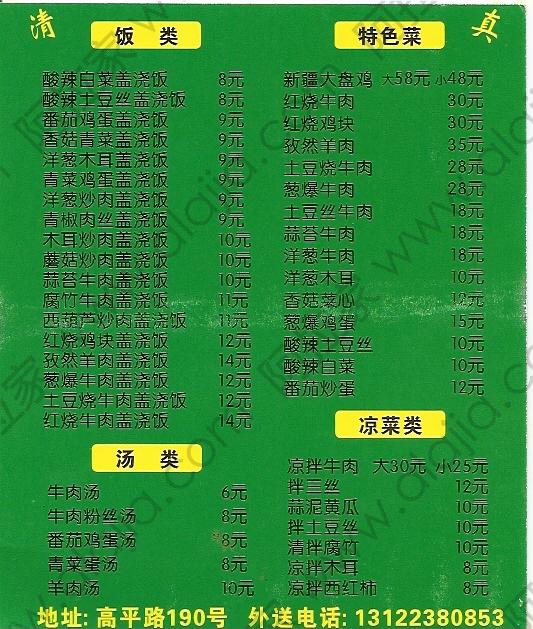 清 真
饭 类
酸辣白菜盖浇饭 8元
酸辣土豆丝盖浇饭 8元
番茄鸡蛋盖浇饭 9元
香菇青菜盖浇饭 9元
洋葱木耳盖浇饭 9元
青菜鸡蛋盖浇饭 9元
洋葱炒肉盖浇饭 9元
青椒肉丝盖浇饭 9元
木耳炒肉盖浇饭 10元
蘑菇炒肉盖浇饭 10元
蒜苔牛肉盖浇饭 10元
腐竹牛肉盖浇饭 11元
西葫芦炒肉盖浇饭 11元
红烧鸡块盖浇饭 12元
孜然羊肉盖浇饭 14元
葱爆牛肉盖浇饭 12元
土豆烧牛肉盖浇饭 12元
红烧牛肉盖浇饭 14元
汤 类
牛肉汤 6元
牛肉粉丝汤 8元
番茄鸡蛋汤 8元
青菜蛋汤 8元
羊肉汤 10元
特色菜
新疆大盘鸡 大58元 小48元
红烧牛肉 30元
红烧鸡块 30元
孜然羊肉 35元
土豆烧牛肉 28元
葱爆牛肉 28元
土豆丝牛肉 18元
蒜苔牛肉 18元
洋葱牛肉 18元
洋葱木耳 10元
香菇菜心 12元
葱爆鸡蛋 15元
酸辣土豆丝 10元
酸辣白菜 10元
番茄炒蛋 12元
凉菜类
凉拌牛肉 大30元 小25元
拌三丝 12元
蒜泥黄瓜 10元
拌土豆丝 10元
清拌腐竹 10元
凉拌木耳 8元
凉拌西红柿 8元
地址: 高平路190号 外送电话: 13122380853